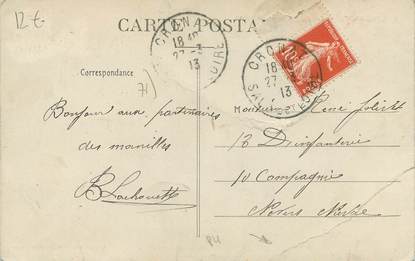 12 €
CARTE POSTALE
CRONAT
18 40
27 - 3
13
LOIRE
CRONAT
18 40
27 - 3
13
SAONE-ET-LOIRE
Correspondance
71
Bonjour aux partenaires
des manilles
B Lachouett
Monsieur René
13 D'infanterie
10 Compagnie
Nevers Nièvre